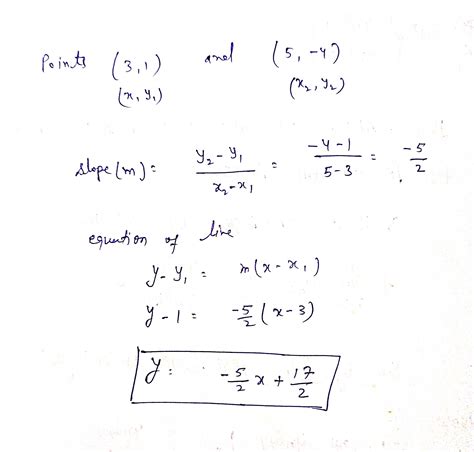 Points (3,1) and (5,-4)
(x, y₁) (x₂, y₂)
slope(m) = y₂-y₁ / x₂-x₁ = -4-1 / 5-3 = -5/2
equation of line
y-y₁ = m(x-x₁)
y-1 = -5/2 (x-3)
y = -5/2 x + 17/2